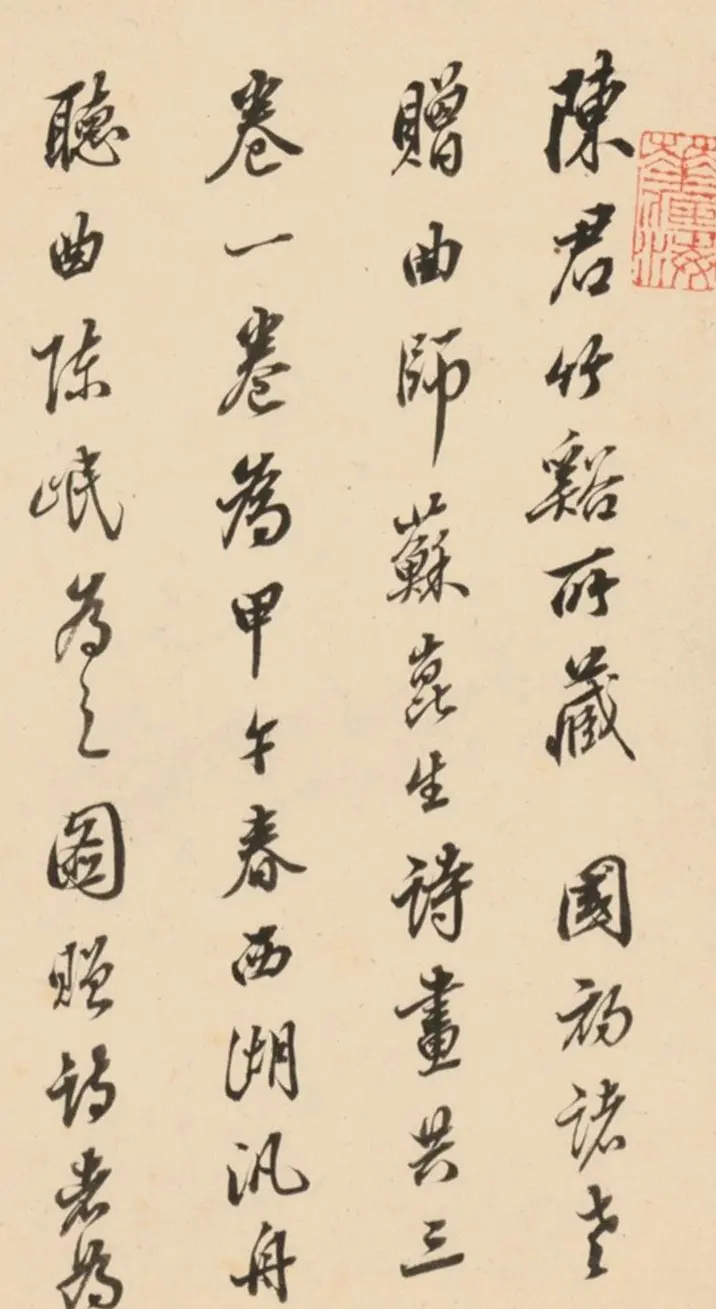 陳君竹谿所藏　國初諸老
贈曲師蘇崑生詩畫共三
卷一卷為甲午春西湖汎舟
聽曲陳岷為之圖贈詩者為